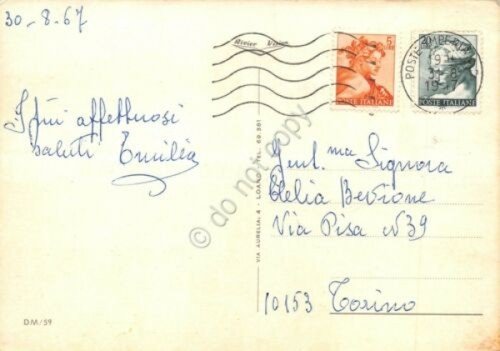 30-8-67
I più affettuosi
saluti Emilia
Gent.ma Signora
Clelia Bevione
Via Pisa N 39
10153 Torino
5
POSTE ITALIANE
POSTE ITALIANE
POSTE IMPERIA
do not copy
VIA AURELIA, 4 - LOANO - TEL. 69.581
D.M/59